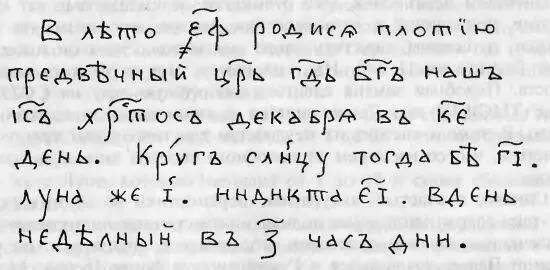 В лѣто ҂еф родисѧ плотїю
предвѣчный цр҃ь гд҃ь бг҃ъ нашъ
іс҃ъ хрⷭ҇тосъ декабря въ к҃е
день. Крꙋгъ сл҃нцу тогда бѣ г҃і.
луна же і҃. индикто е҃і. в день
недѣлный въ з҃ часъ дни.